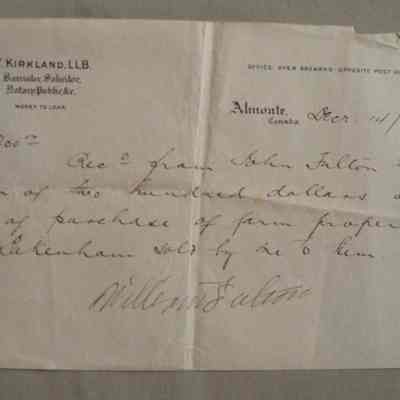 KIRKLAND, LLB.
Barrister, Solicitor,
Notary Public, &c.
MONEY TO LOAN.
OFFICE: OVER BROWN'S OPPOSITE POST
Almonte,
Canada, Decr 14/
Recd from John Fulton
of two hundred dollars
of purchase of farm proper
Pakenham sold by me to him
Fulton